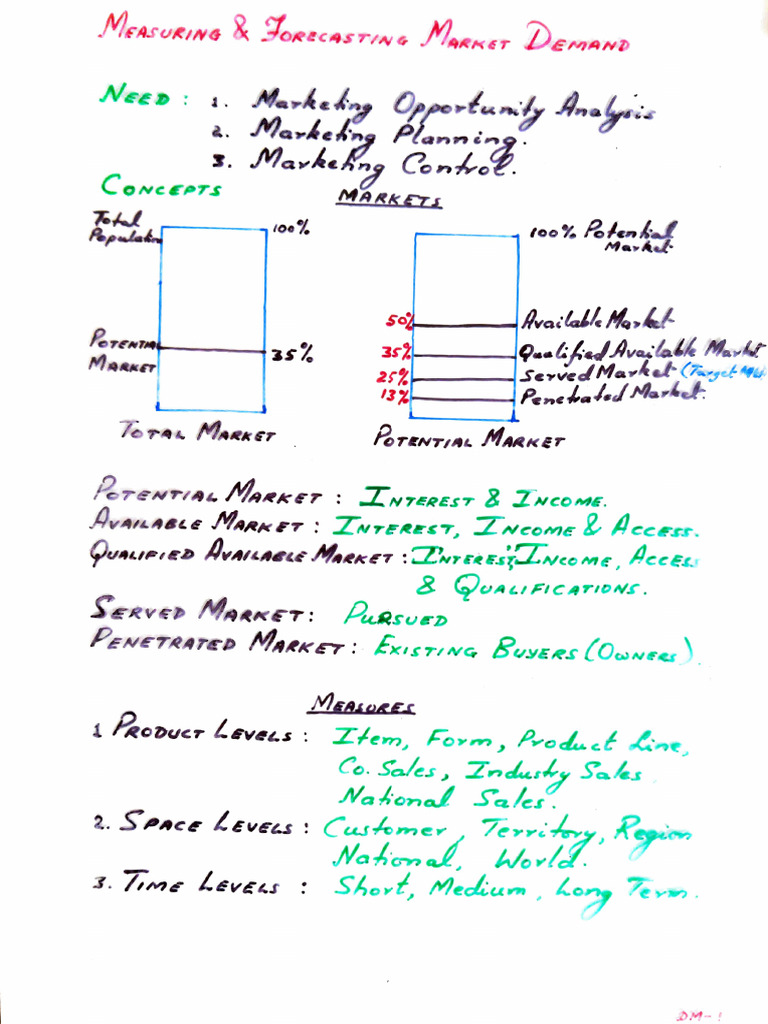 MEASURING & FORECASTING MARKET DEMAND
NEED : 1. Marketing Opportunity Analysis
2. Marketing Planning.
3. Marketing Control.
CONCEPTS
MARKETS
Total Population
100%
POTENTIAL MARKET
35%
TOTAL MARKET
100% Potential Market
50% Available Market
35% Qualified Available Market
25% Served Market (Target Mkt
13% Penetrated Market.
POTENTIAL MARKET
POTENTIAL MARKET : INTEREST & INCOME.
AVAILABLE MARKET : INTEREST, INCOME & ACCESS.
QUALIFIED AVAILABLE MARKET : INTEREST, INCOME, ACCESS
& QUALIFICATIONS.
SERVED MARKET : PURSUED
PENETRATED MARKET : EXISTING BUYERS (OWNERS).
MEASURES
1 PRODUCT LEVELS : Item, Form, Product Line,
Co. Sales, Industry Sales
National Sales.
2. SPACE LEVELS : Customer, Territory, Region
National, World.
3. TIME LEVELS : Short, Medium, Long Term.
DM-1